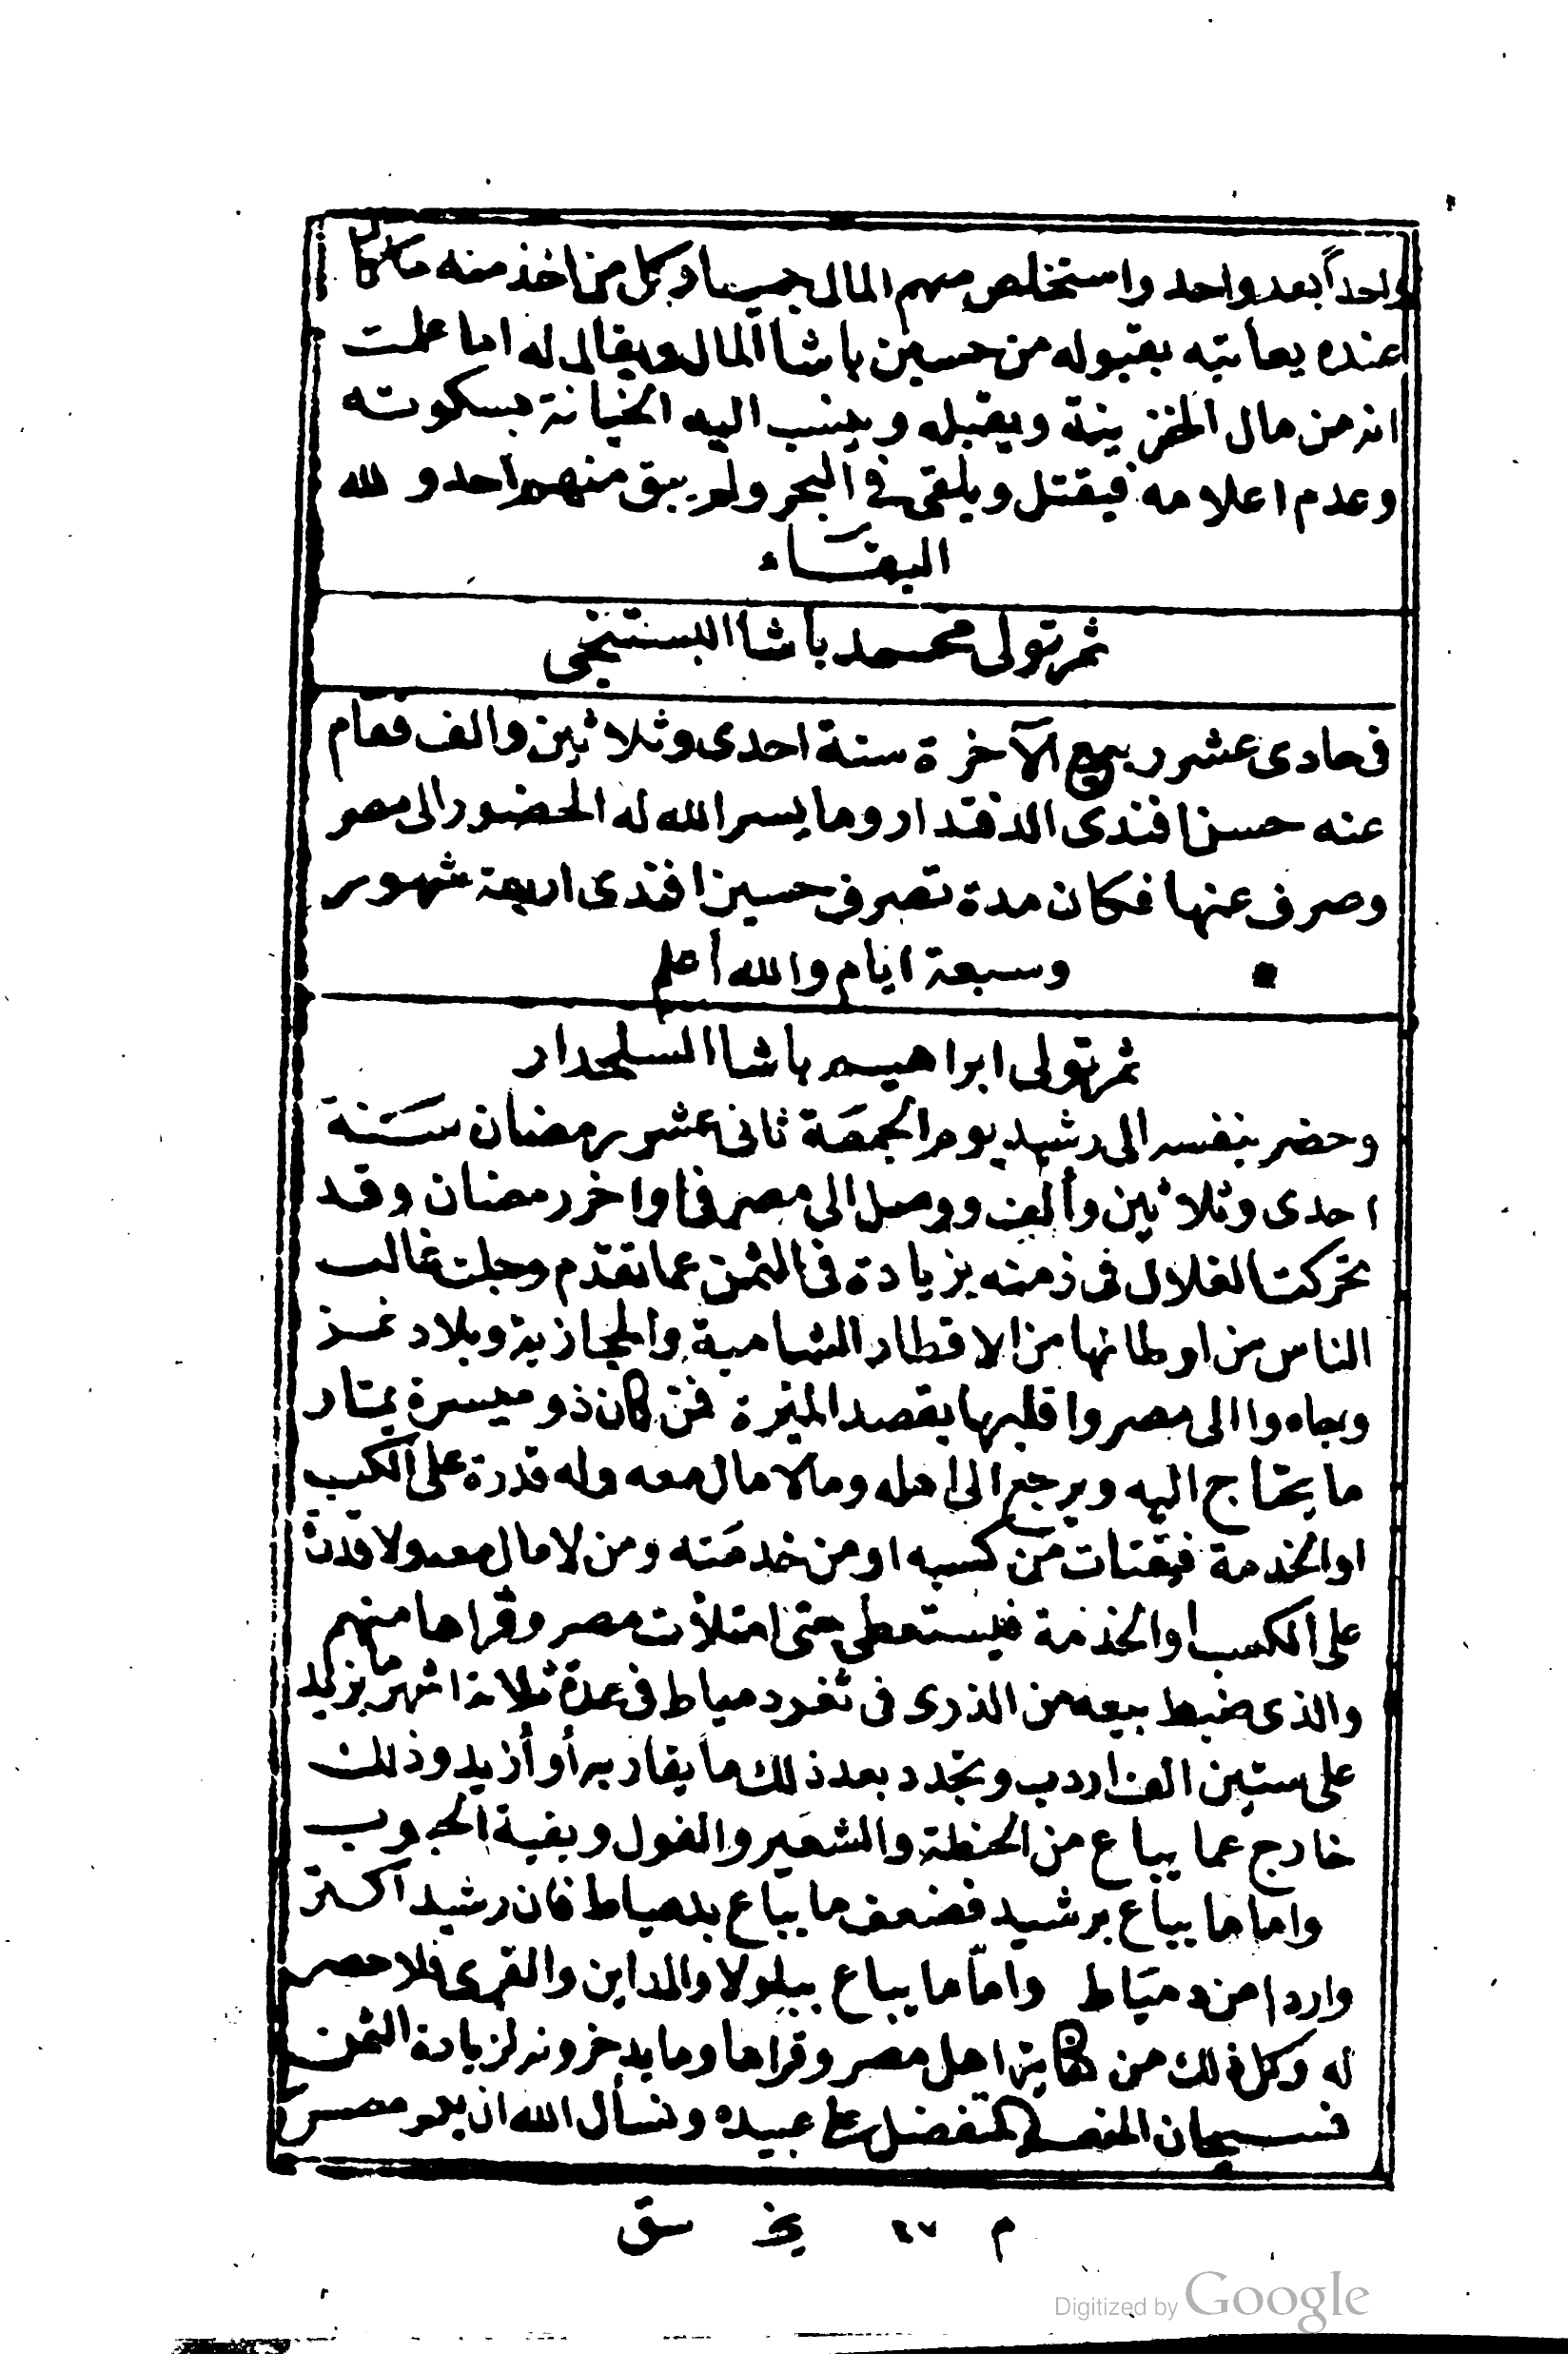 واحداً بعد واحد واستخلص منهم المال جميعا وكل من اخذ منه ما كان
عنده يعاتبه بقبوله من حسين باشا المال ويقال له اما علمت
انه من مال الخزينة ويقبله وينسب اليه الخيانة بسكوته
وعدم اعلامه فيقتل ويلقى فى البحر ولم يبق منهم احد ولله
البقاء
ثم تولى محمد باشا البستنجى
فى حادى عشر ربيع الآخرة سنة احدى وثلاثين والف فقام
عنه حسن افندى الدفتدار وما يسر الله له الحضور الى مصر
وصرف عنها فكان مدة تصرف حسين افندى اربعة شهور
وسبعة ايام والله أعلم
ثم تولى ابراهيم باشا السلحدار
وحضر بنفسه الى رشيد يوم الجمعة ثانى عشر رمضان سنة
احدى وثلاثين وألف ووصل الى مصر فى اواخر رمضان وقد
تحركت الغلال فى زمنه بزيادة فى الثمن عما تقدم وجلت غالب
الناس من اوطانها من الاقطار الشامية والحجازية وبلاد غز
وجاه والى مصر واقليها بقصد الميرة فمن كان ذو ميسرة يمتار
ما يحتاج اليه ويرجع الى اهله ومالا مال معه وله قدرة على الكسب
او الخدمة فيقتات من كسبه او من خدمته ومن لا مال معه ولا قدرة
على الكسب او الخدمة فيستعطى حتى امتلأت مصر وقراها منهم
والذى ضبط بيعه من الذرى فى ثغر دمياط فى عدة ثلاثة اشهر ما يزيد
على ستين الف اردب وتجدد بعد ذلك ما يقاربه أو أزيد وذلك
خارج عما يباع من الحنطة والشعير والفول وبقية الحبوب
واما ما يباع برشيد فضعف ما يباع بدمياط فان رشيد اكثر
واردا من دمياط واما ما يباع ببلولا والمداين والقرى فلا حصر
له وكل ذلك من كفاية اهل مصر وقراها وما يدخرونه لزيادة الثمن
فسبحان المنعم المتفضل على عبيده ونسأل الله ان يعمر مصر
م ٢٧ سق
Digitized by Google